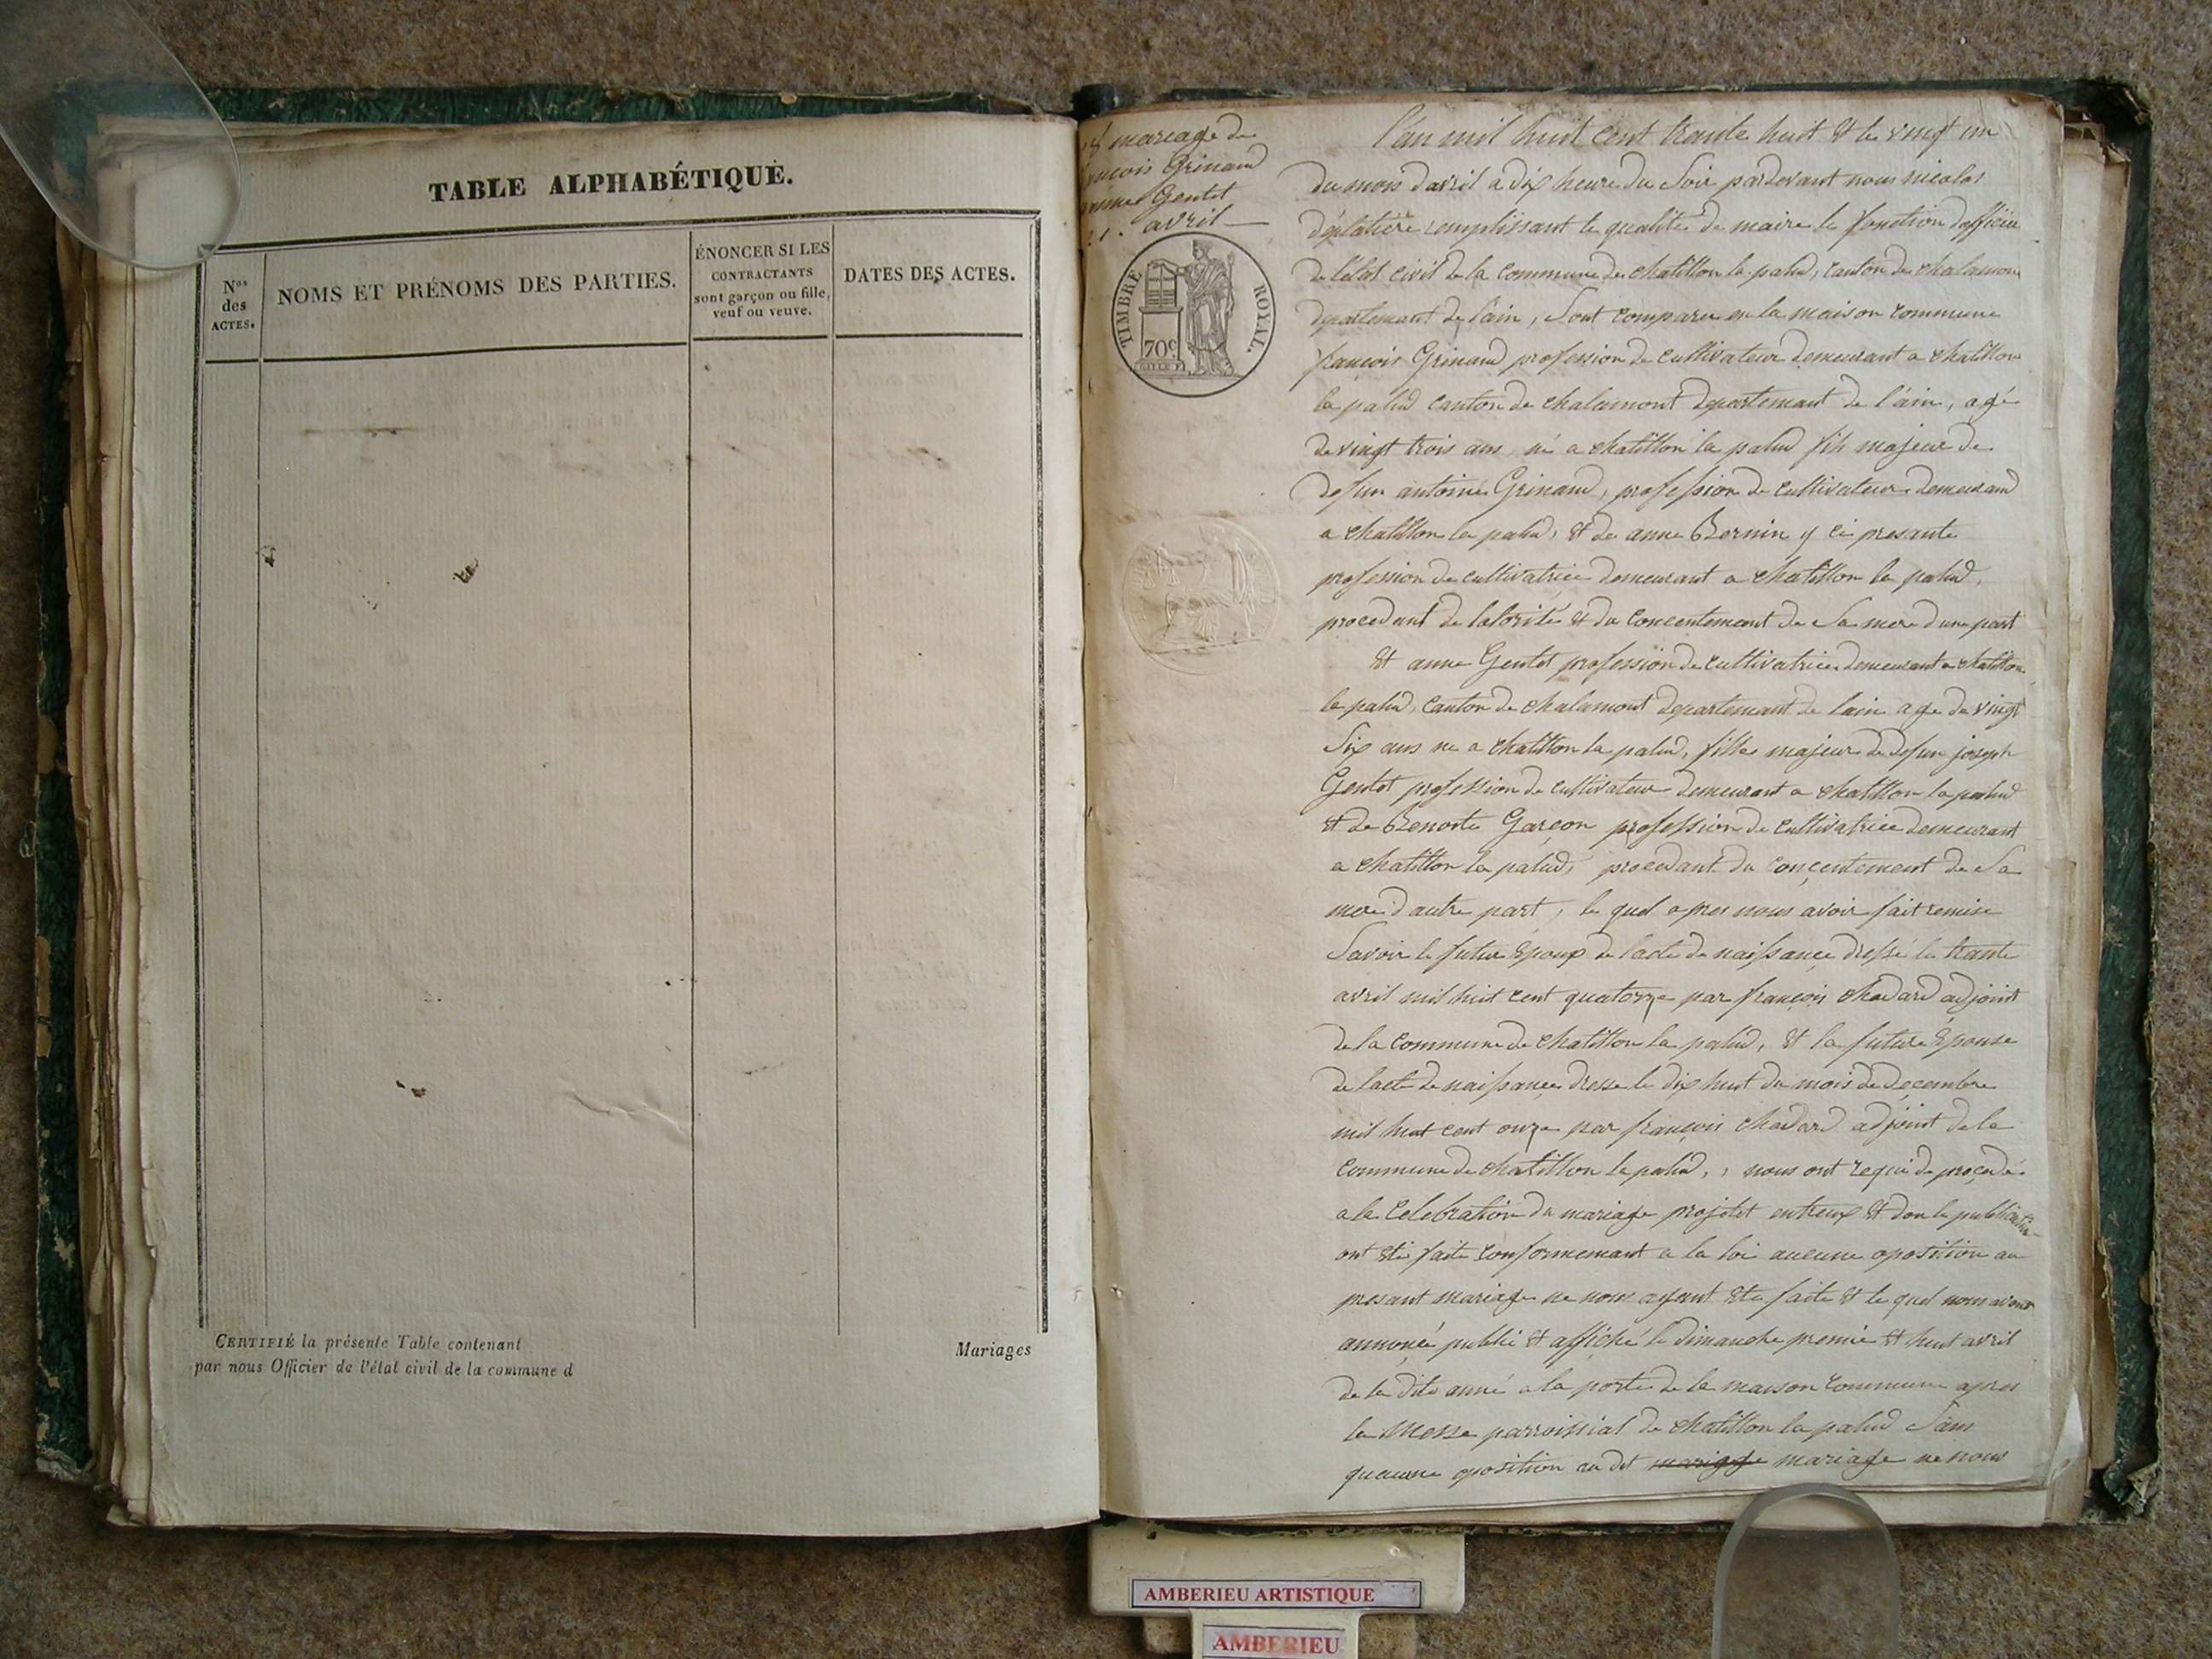 TABLE ALPHABÉTIQUE.
Nos des ACTES.
NOMS ET PRÉNOMS DES PARTIES.
ÉNONCER SI LES
CONTRACTANTS
sont garçon ou fille,
veuf ou veuve.
DATES DES ACTES.
CERTIFIÉ la présente Table contenant
Mariages
par nous Officier de l'état civil de la commune d
mariage de
Grinand
Gentet
avril
TIMBRE ROYAL.
70c
l'an mil huit cent trante huit & le vingt un
du mois davril a dix heure du Soir pardevant nous nicolas
déplatière remplissant le qualité de maire le fonction dofficier
de létat civil de la Commune de chatillon la palud, canton de chalamon
departemant de lain, Sont comparu en la maison commune
françois Grinand profession de cultivateur demeurant a chatillon
la palud canton de chalamont departemant de l'ain, agé
de vingt trois ans né a chatillon la palud fils majeur de
defun antoine Grinand, profession de cultivateur demeurand
a chatillon la palud, & de anne Bernin y ci presante
profession de cultivatrice demeurant a chatillon la palud,
procedant de lalorité & du concentement de Sa mere dune part
& anne Gentet profession de cultivatrice demeurant a chatillon
la palud, canton de chalamont departemant de lain age de vingt
Six ans ne a chatillon la palud, fille majeur de defun joseph
Gentet profession de cultivateur demeurant a chatillon la palud
& de Benoite Garçon profession de cultivatrice demeurant
a chatillon la palud, procedant du conçentement de Sa
mere d'autre part, le quel apres nous avoir fait remise
Savoir le futur époux de lacte de naissance dressé le trante
avril mil huit cent quatorze par françois chadard adjoint
de la Commune de chatillon la palud, & la future épouse
de lacte de naissance dresse le dix huit du mois de decembre
mil huit cent onze par françois chadard adjoint de la
commune de chatillon la palud, , nous ont requi de procedé
a la Celebration du mariage projetet entreux & don le publication
ont été faite conformemant a la loi aucune oposition au
presant mariage ne nous ayant été faite & le quel nous avons
annoncé publié & affiché le dimanche premié & huit avril
de la dite anné a la porte de la maison commune apres
la Messe parroissial de chatillon la palud Sans
quaucune oposition au dit mariage mariage ne nous
AMBERIEU ARTISTIQUE
AMBERIEU